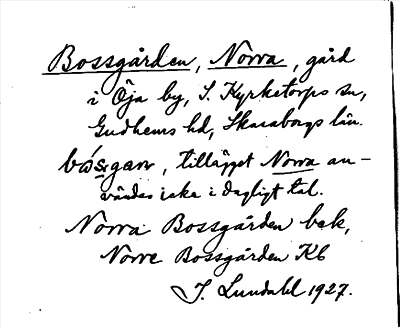 Bossgården, Norra, gård
i Öja by, S. Kyrketorps sn,
Gudhems hd, Skaraborgs län.
tillägget Norra an-
vändes icke i dagligt tal.
Norra Bossgården bek,
Norre Bossgården Kb
J. Lundahl 1927.